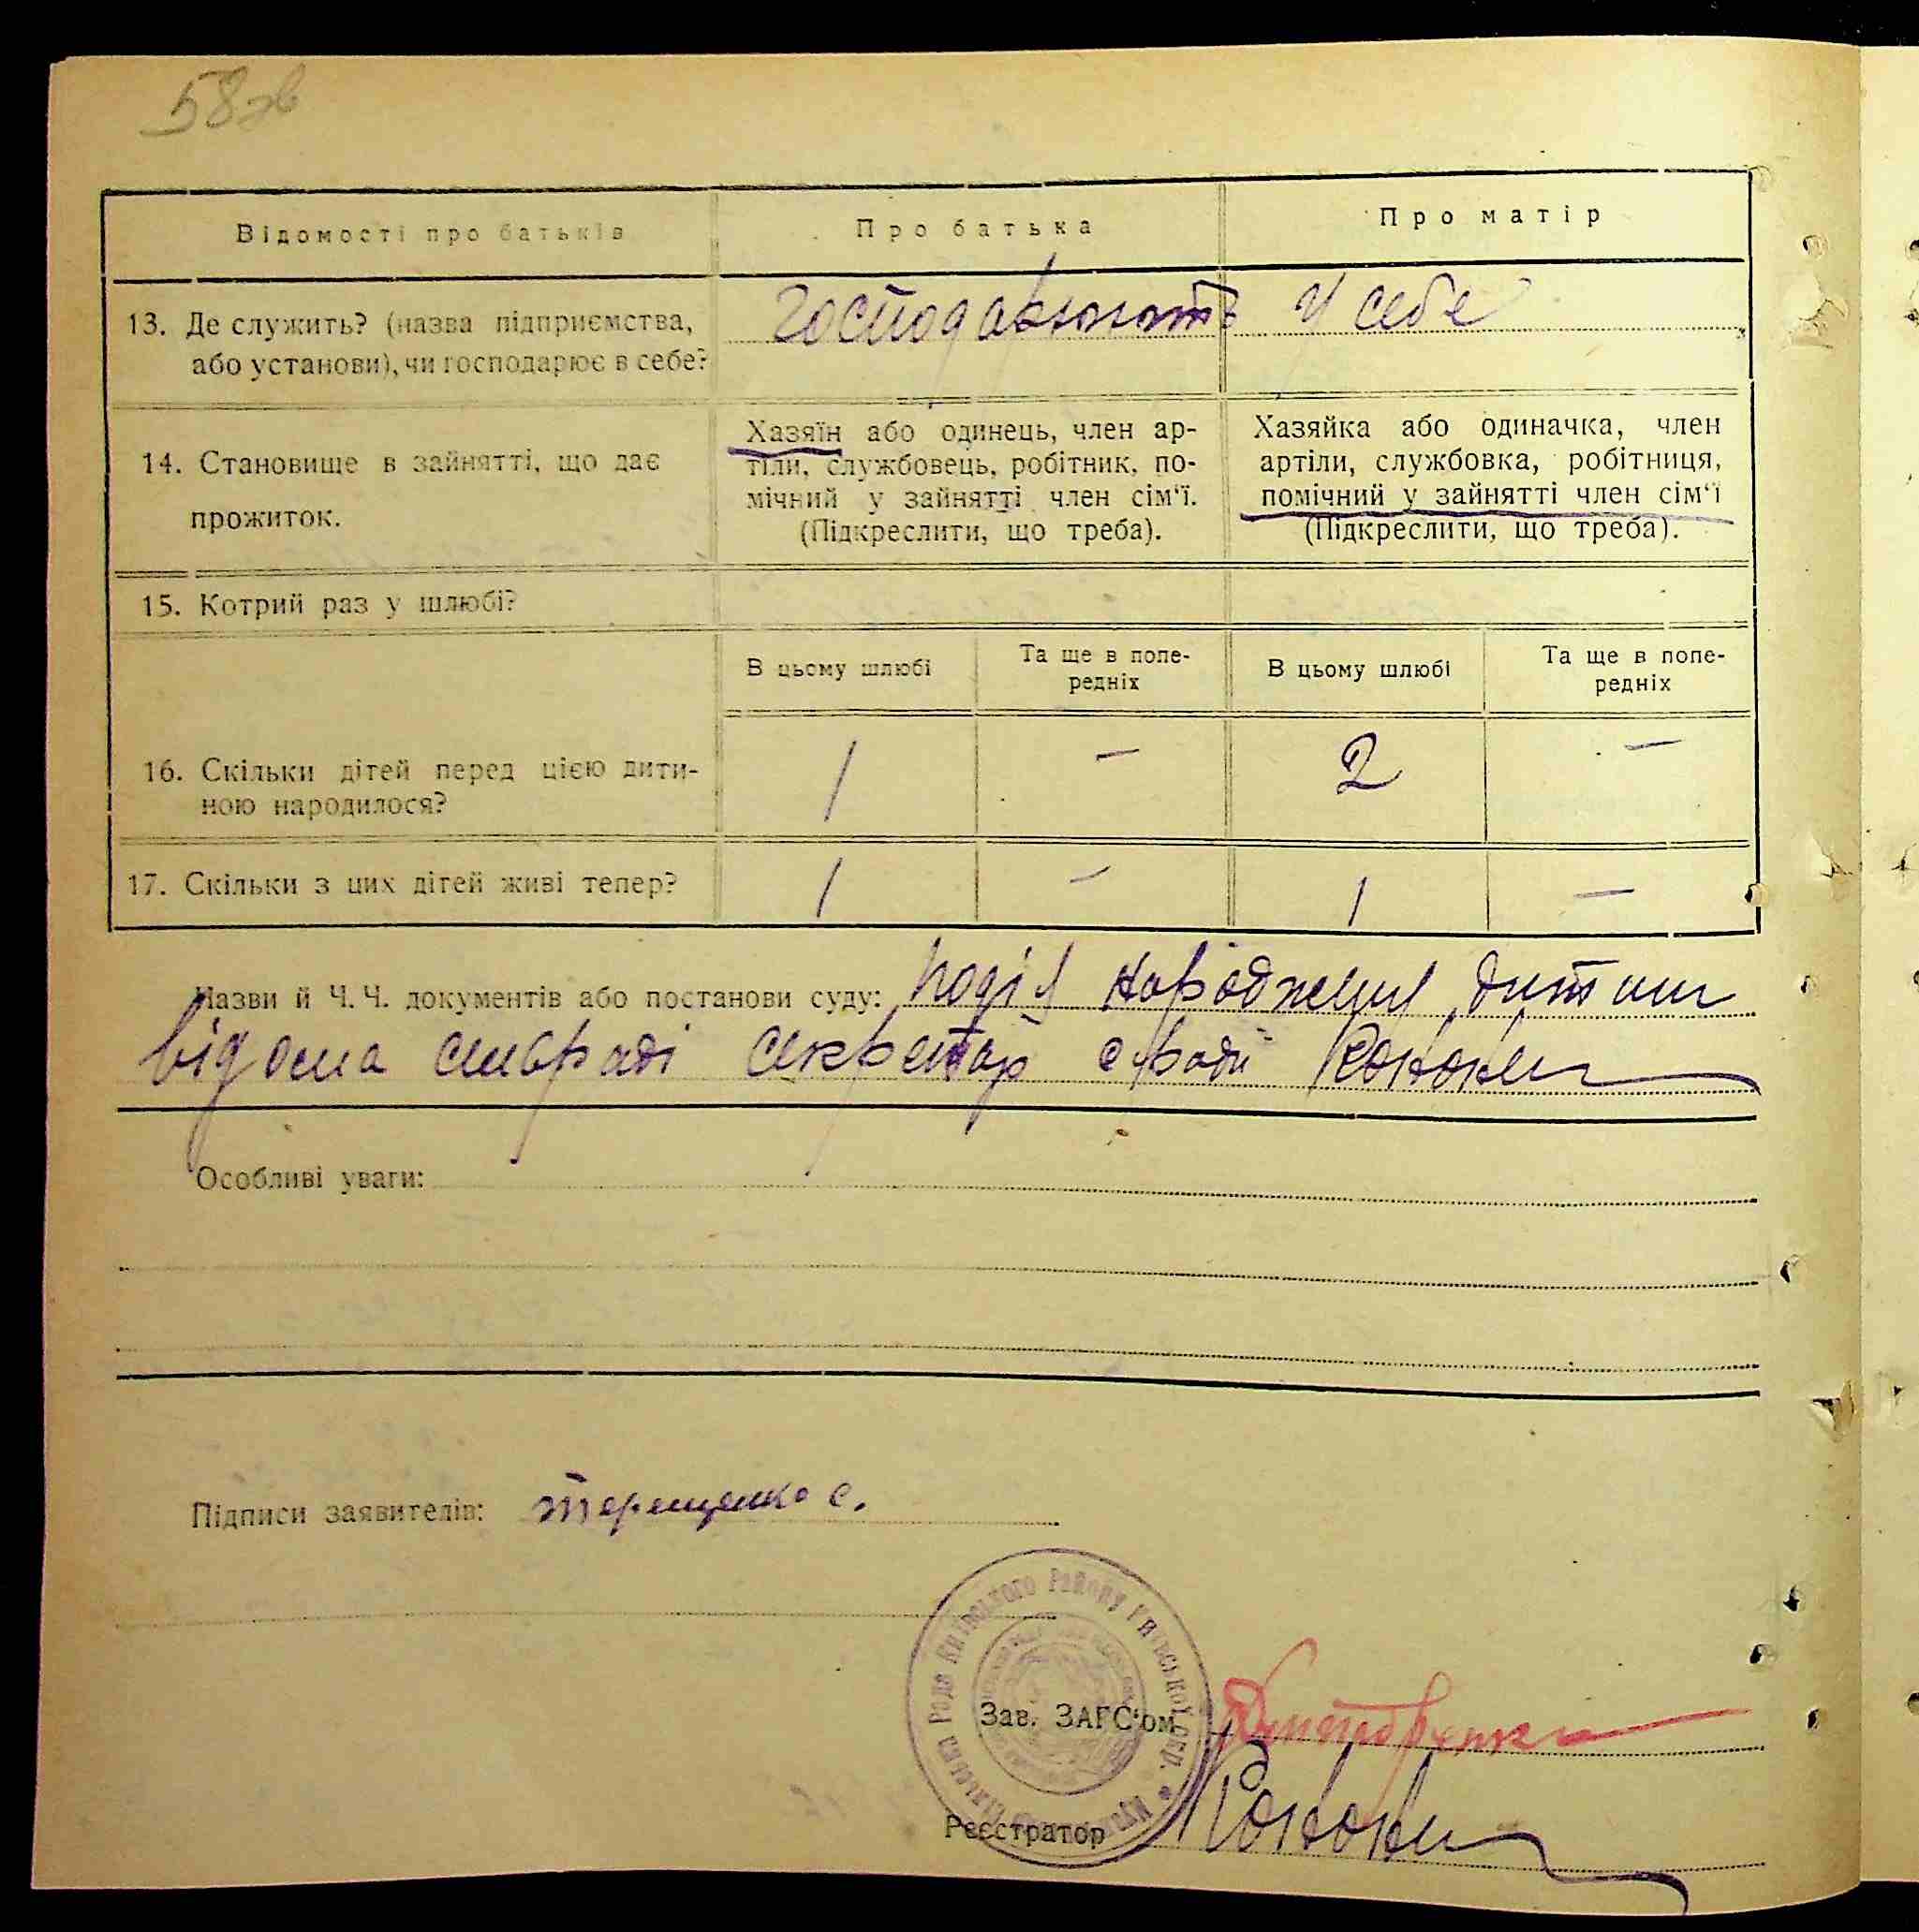 58зв
Відомості про батьків
Про батька
Про матір
13. Де служить? (назва підприємства,
або установи), чи господарює в себе?
Господарюють у себе
14. Становище в зайнятті, що дає
прожиток.
Хазяїн або одинець, член ар-
тіли, службовець, робітник, по-
мічний у зайнятті член сім‘ї.
(Підкреслити, що треба).
Хазяйка або одиначка, член
артіли, службовка, робітниця,
помічний у зайнятті член сім‘ї
(Підкреслити, що треба).
15. Котрий раз у шлюбі?
В цьому шлюбі
Та ще в попе-
редніх
В цьому шлюбі
Та ще в попе-
редніх
16. Скільки дітей перед цією дити-
ною народилося?
1 — 2 —
17. Скільки з цих дітей живі тепер?
1 — 1 —
Назви й Ч. Ч. документів або постанови суду: Подія народження дитини
відома сільраді секретар с/ради
Особливі уваги:
Підписи заявителів: Терещенко с.
Сільська Рада Київського Району Київської окр.
Зав. ЗАГС‘ом
Реєстратор